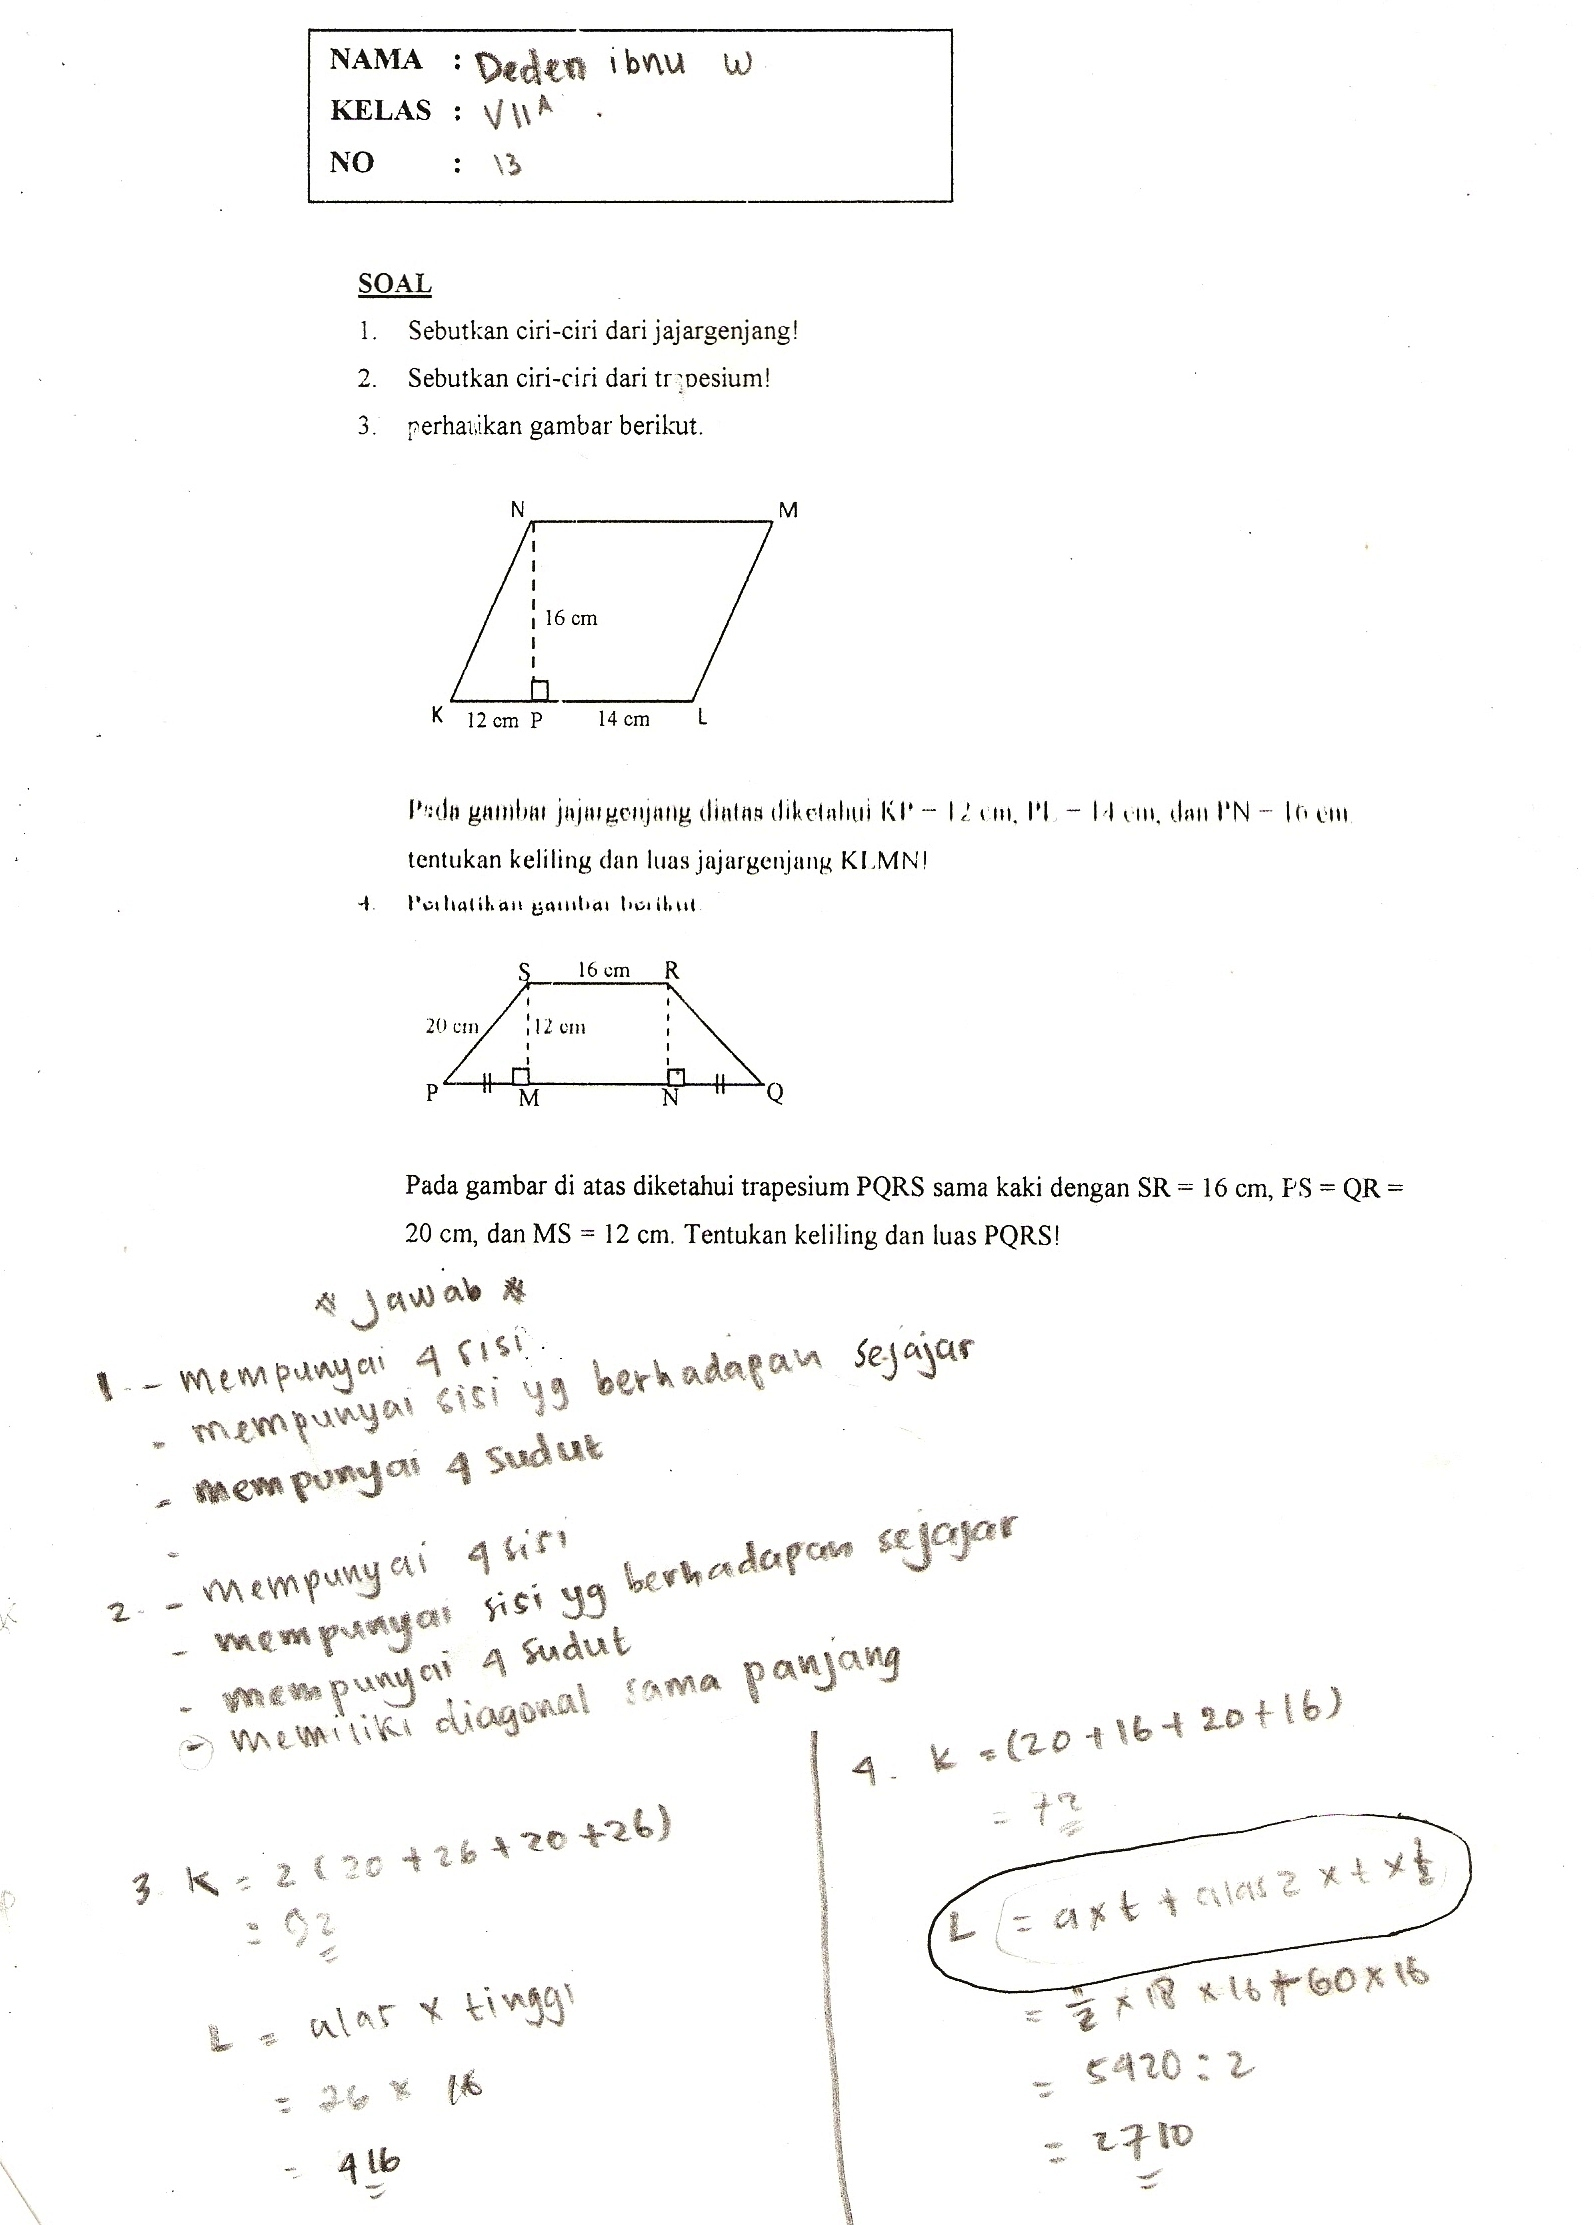 NAMA : Deden ibnu W
KELAS : VII A
NO : 13
SOAL
1. Sebutkan ciri-ciri dari jajargenjang!
2. Sebutkan ciri-ciri dari trapesium!
3. perhatikan gambar berikut.
N M
16 cm
K 12 cm P 14 cm L
Pada gambar jajargenjang diatas diketahui KP = 12 cm, PL = 14 cm, dan PN = 16 cm
tentukan keliling dan luas jajargenjang KLMN!
4. Perhatikan gambar berikut
S 16 cm R
20 cm 12 cm
P M N Q
Pada gambar di atas diketahui trapesium PQRS sama kaki dengan SR = 16 cm, PS = QR =
20 cm, dan MS = 12 cm. Tentukan keliling dan luas PQRS!
* Jawab *
1. - mempunyai 4 sisi
- mempunyai sisi yg berhadapan sejajar
- mempunyai 4 sudut
-
2. - mempunyai 4 sisi
- mempunyai sisi yg berhadapan sejajar
- mempunyai 4 sudut
- memiliki diagonal sama panjang
3. K = 2 (20 + 26 + 20 + 26)
= 92
L = alas x tinggi
= 26 x 16
= 416
4. K = (20 + 16 + 20 + 16)
= 72
L = a x t + alas 2 x t x 1/2
= 1/2 x 18 x 16 + 60 x 16
= 5420 : 2
= 2710